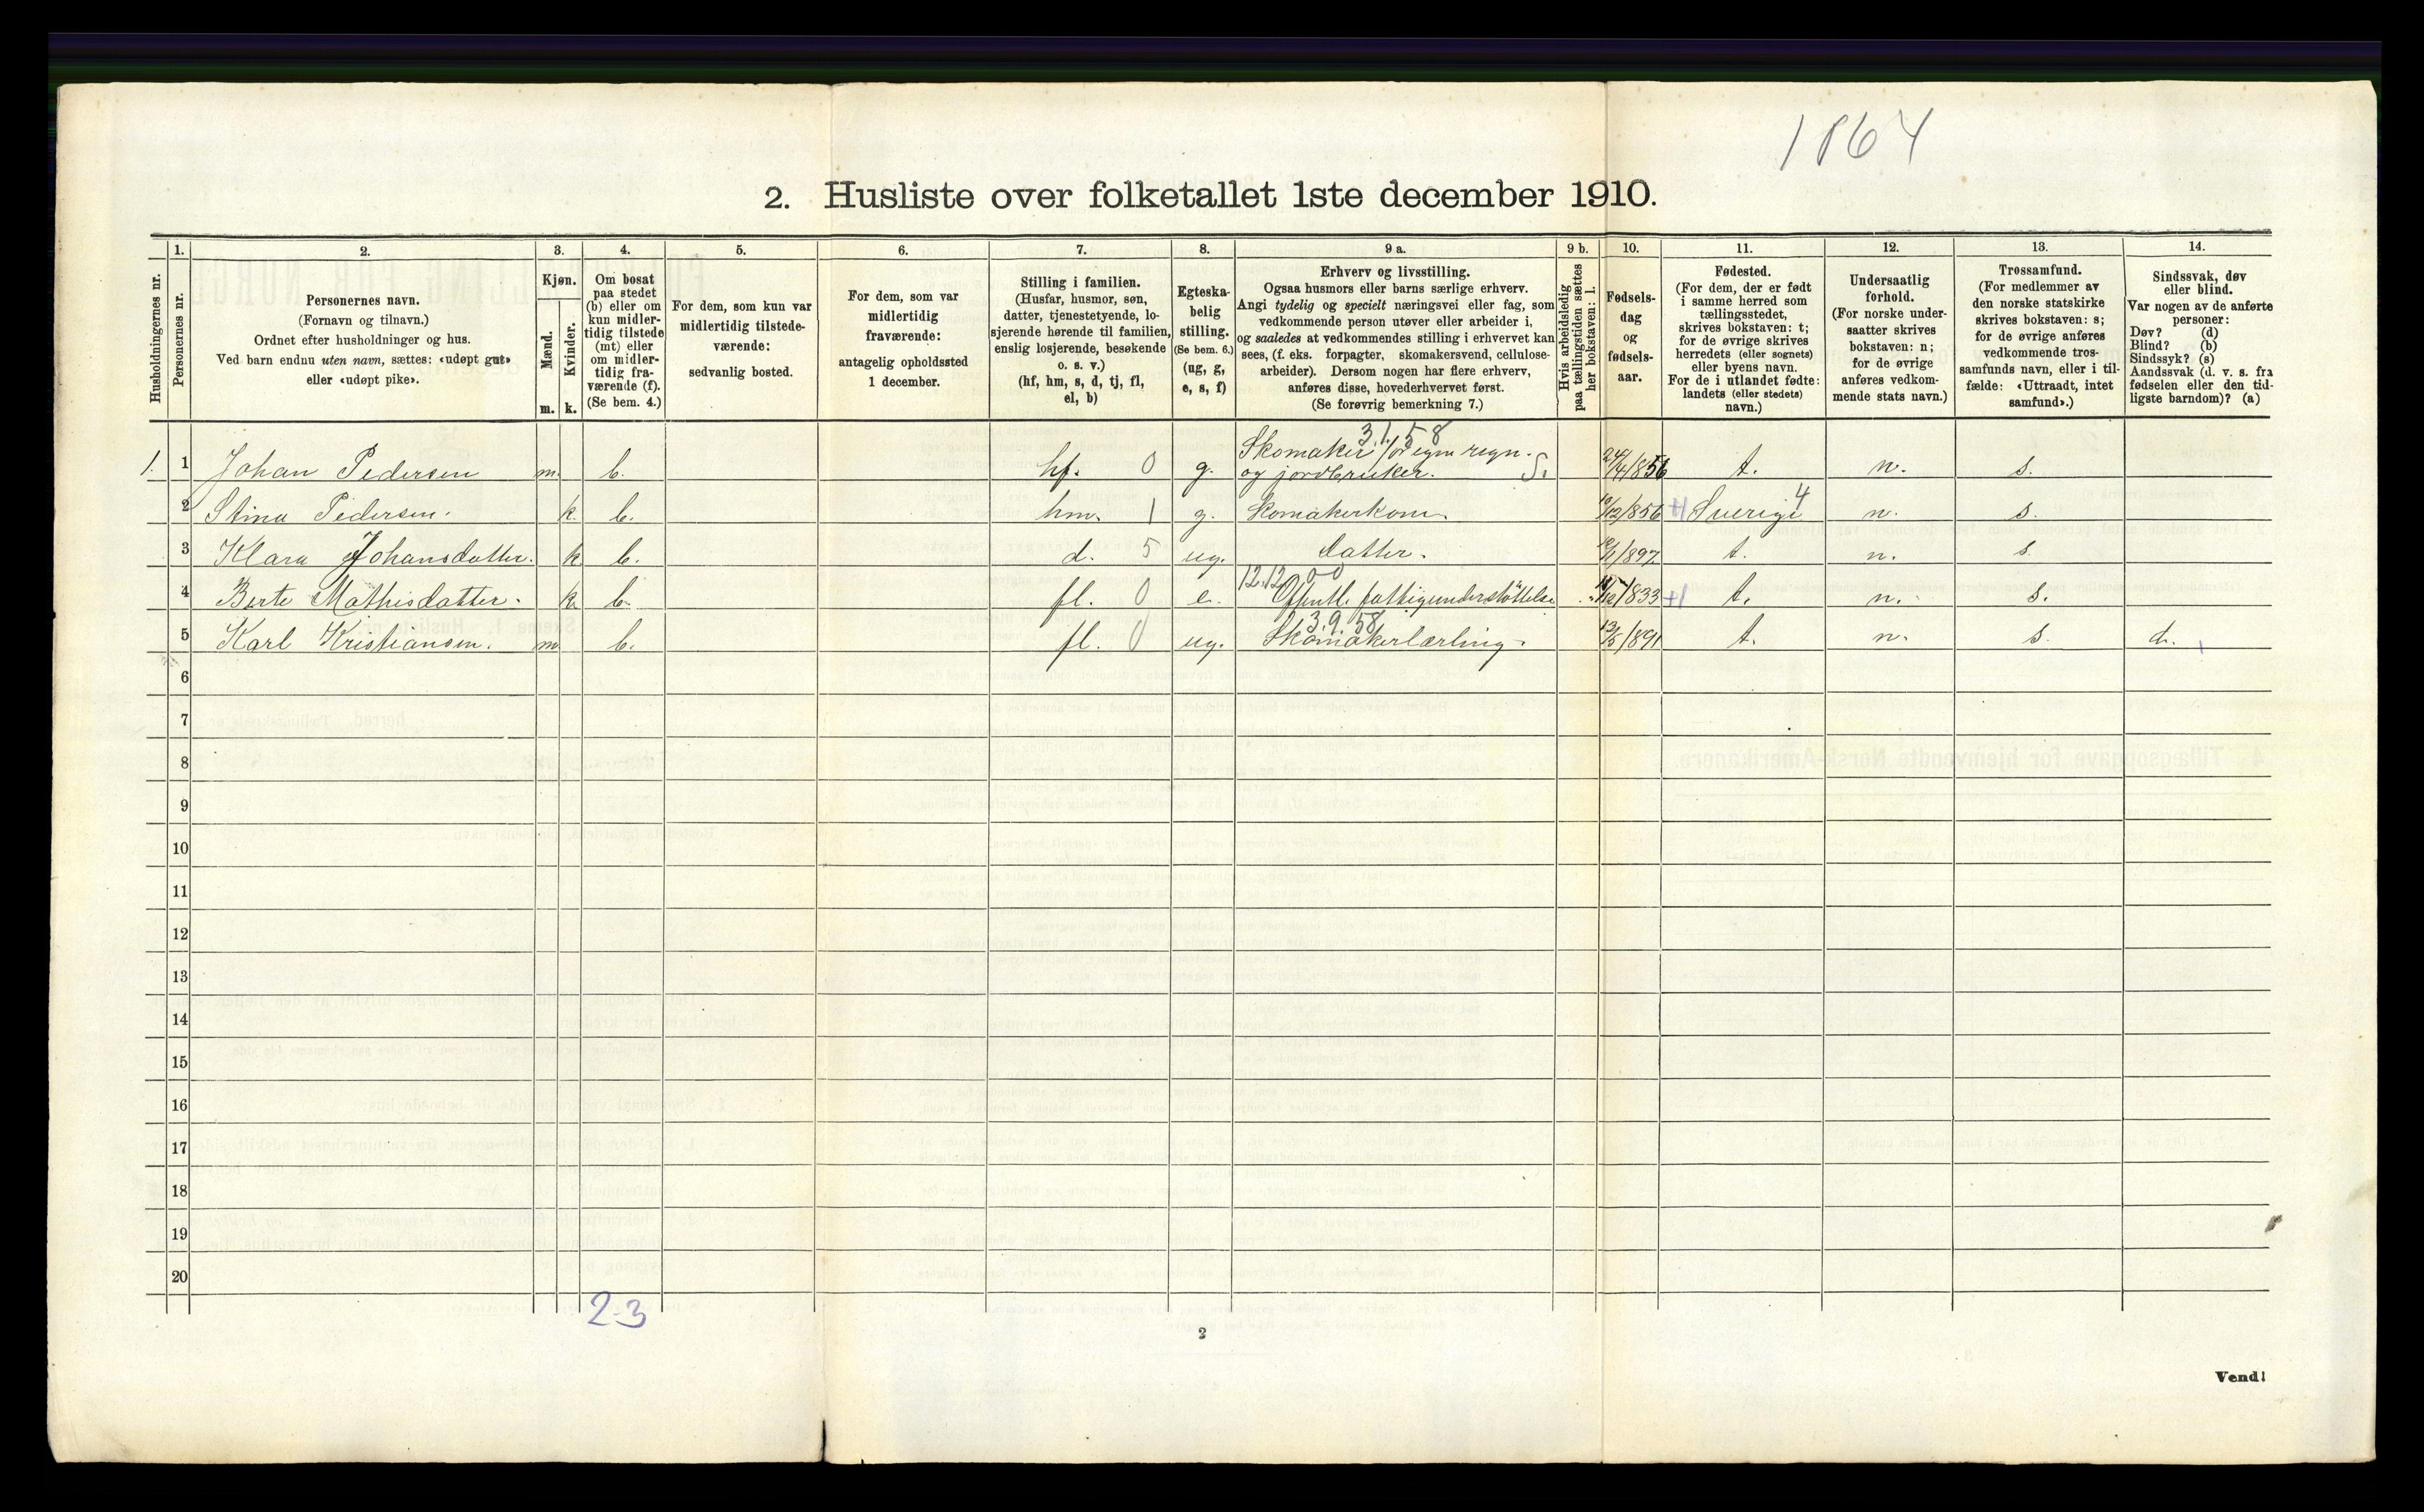 1864
2. Husliste over folketallet 1ste december 1910.
Husholdningernes nr.
1.
Personernes nr.
2.
Personernes navn.
(Fornavn og tilnavn.)
Ordnet efter husholdninger og hus.
Ved barn endnu uten navn, sættes: «udøpt gut»
eller «udøpt pike».
3.
Kjøn.
Mænd.
Kvinder.
m. k.
4.
Om bosat
paa stedet
(b) eller om
kun midler-
tidig tilstede
(mt) eller
om midler-
tidig fra-
værende (f).
(Se bem. 4.)
5.
For dem, som kun var
midlertidig tilstede-
værende:
sedvanlig bosted.
6.
For dem, som var
midlertidig
fraværende:
antagelig opholdssted
1 december.
7.
Stilling i familien.
(Husfar, husmor, søn,
datter, tjenestetyende, lo-
sjerende hørende til familien,
enslig losjerende, besøkende
o. s. v.)
(hf, hm, s, d, tj, fl,
el, b)
8.
Egteska-
belig
stilling.
(Se bem. 6.)
(ug, g,
e, s, f)
9 a.
Erhverv og livsstilling.
Ogsaa husmors eller barns særlige erhverv.
Angi tydelig og specielt næringsvei eller fag, som
vedkommende person utøver eller arbeider i,
og saaledes at vedkommendes stilling i erhvervet kan
sees, (f. eks. forpagter, skomakersvend, cellulose-
arbeider). Dersom nogen har flere erhverv,
anføres disse, hovederhvervet først.
(Se forøvrig bemerkning 7.)
9 b.
Hvis arbeidsledig
paa tællingstiden sættes
her bokstaven: l.
10.
Fødsels-
dag
og
fødsels-
aar.
11.
Fødested.
(For dem, der er født
i samme herred som
tællingsstedet,
skrives bokstaven: t;
for de øvrige skrives
herredets (eller sognets)
eller byens navn.
For de i utlandet fødte:
landets (eller stedets)
navn.)
12.
Undersaatlig
forhold.
(For norske under-
saatter skrives
bokstaven: n;
for de øvrige
anføres vedkom-
mende stats navn.)
13.
Trossamfund.
(For medlemmer av
den norske statskirke
skrives bokstaven: s;
for de øvrige anføres
vedkommende tros-
samfunds navn, eller i til-
fælde: «Uttraadt, intet
samfund».)
14.
Sindssvak, døv
eller blind.
Var nogen av de anførte
personer:
Døv? (d)
Blind? (b)
Sindssyk? (s)
Aandssvak (d. v. s. fra
fødselen eller den tid-
ligste barndom)? (a)
3.1.58
1. 1 Johan Pedersen m. b. hf. 0 g. Skomaker for egen regn. og jordbruker. S. 24/4/856 t. n. s.
2 Stina Pedersen. k. b. hm. 1 g. Skomakerkone. 10/12/856 Sverige 4 n. s.
3 Klara Johansdatter. k b. d. 5 ug. datter. /1/897 t. n. s.
12.12.00
4 Berte Mathisdatter. k. b. fl. 0 e. Offentl. fattigunderstöttelse /12/833 t. n. s.
3.9.58
5 Karl Kristiansen. m b. fl. 0 ug. Skomakerlærling. 13/5/891 t. n. s. d.
6
7
8
9
10
11
12
13
14
15
16
17
18
19
20
2-3
2
Vend!